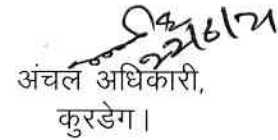 22/6/21
अंचल अधिकारी,
कुरडेग।